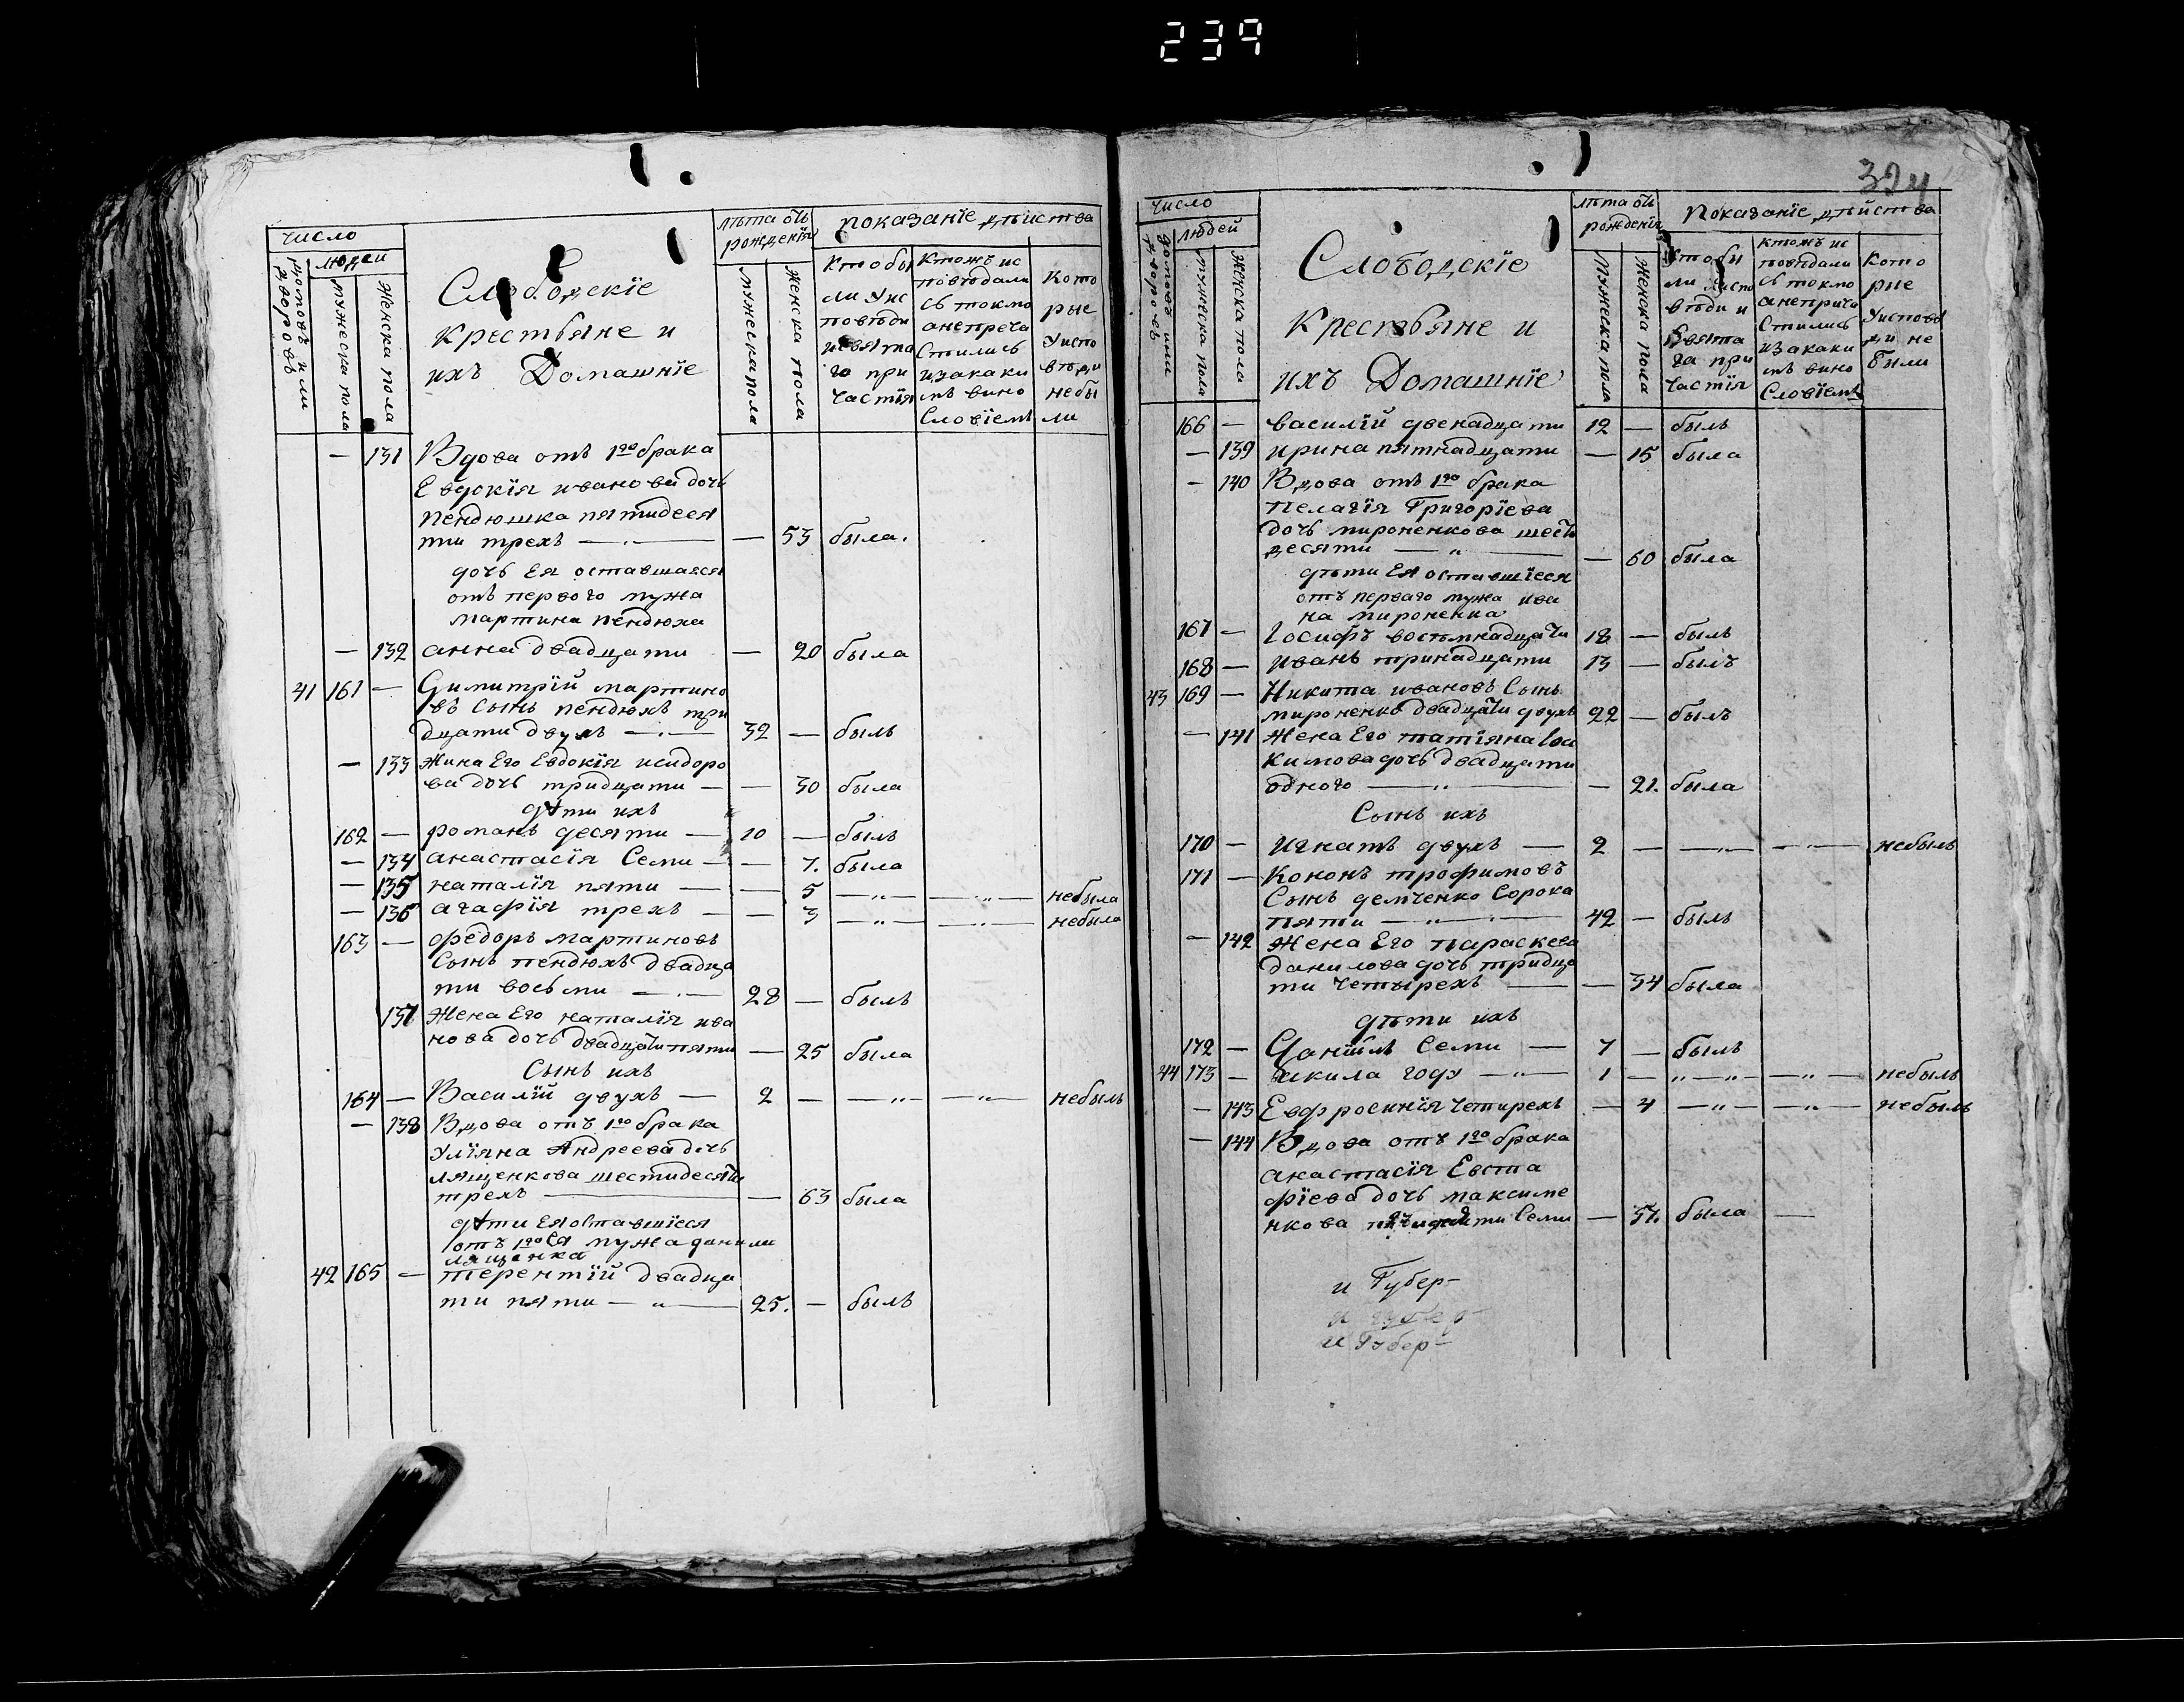 239
число
людей
домовъ или дворовъ
мужеска пола
женска пола
Слободскіе
крестьяне и
ихъ Домашніе
лѣта отъ
рожденія
мужеска пола
женска пола
показаніе дѣиства
Кто бы
ли у ис
повѣди
и свята
го при
частія
Ктожъ ис
повѣдали
сь токмо
а непреча
стились
и за каки
мъ вино
словіемъ
Кото
рые
у испо
вѣди
небы
ли
— 131 Вдова отъ 1го брака
Евдокія иванова дочь
Пендюшка пятидеся
ти трехъ — 53 была.
дочь Ея оставшаяся
отъ первого мужа
мартина пендюха
— 132 анна двадцати — 20 была
41 161 — Димитрій мартино
въ сынъ пендюхъ три
дцати двухъ — 32 — былъ
— 133 жина Его Евдокія исидоро
ва дочь тридцати — — 30 была
дѣти ихъ
162 — романъ десяти — 10 — былъ
— 134 анастасія Семи — — 7. была
— 135 наталія пяти — — 5 — „ — — „ — небыла
— 136 агафія трехъ — — 3 — „ — — „ — небыла
163 — федоръ мартиновъ
сынъ пендюхъ двадца
ти восьми — 28 — былъ
137 жена Его наталія ива
нова дочь двадцати пяти — 25 была
Сынъ ихъ
164 — Василій двухъ — 2 — — „ — — „ — небылъ
— 138 Вдова отъ 1го брака
Уліяна Андреева дочь
лященкова шестидесяти
трехъ — — 63 была
дѣти Ея оставшіеся
отъ 1го Ея мужа данили
лященка
42 165 — терентій двадца
ти пяти — „ — 25. — былъ
324
число
людей
домовъ или
дворовъ
мужеска пола
женска пола
Слободскіе
Крестьяне и
ихъ Домашніе
лѣта отъ
рожденія
мужеска пола
женска пола
Показаніе дѣйства
Кто бы
ли у испо
вѣди и
Свята
га при
частія
ктожъ ис
повѣдали
сь токмо
а неприча
Стились
и за каки
мъ вино
Словіемъ
Кото
рые
У исповѣ
ди не
были
166 — василій двенадцати 12 — былъ
— 139 ирина пятнадцати — 15 была
— 140 Вдова отъ 1го брака
Пелагія Григоріева
дочь мироненкова шесть
десяти — „ — — 60 была
дѣти Ея оставшіеся
отъ перваго мужа ива
на мироненка
167 — Іосифъ восемнадцати 18 — былъ
168 — иванъ тринадцати 13 — былъ
43 169 — Никита ивановъ Сынъ
мироненко двадцати двухъ 22 — былъ
— 141 жена Его татіяна Іоа
кимова дочь двадцати
одного — „ — — 21. была
Сынъ ихъ
170 — Игнатъ двухъ — 2 — — „ — — „ — небылъ
171 — Кононъ трофимовъ
Сынъ демченко Сорока
пяти — „ — 42 — былъ
— 142 жена Его параскева
данилова дочь тридца
ти четырехъ — — 34 была
дѣти ихъ
172 — Даніилъ Семи — 7 — былъ
44 173 — акила году — „ — 1 — „ — „ — — „ — небылъ
— 143 Евфросинія четирехъ — 4 — „ — — „ — небылъ
— 144 Вдова отъ 1го брака
анастасія Евста
фіева дочь максиме
нкова Семи — 57. была —
и Губер-
и Губер-
и Губер-